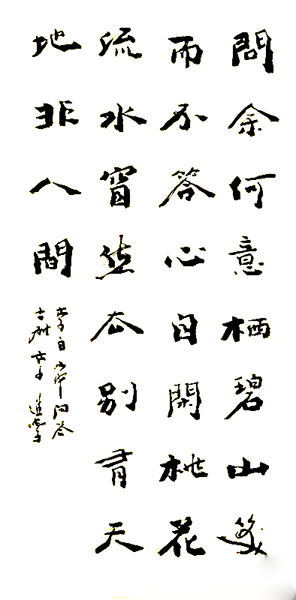 問余何意栖碧山笑
而不答心自閑桃花
流水窅然去別有天
地非人間
李白山中问答